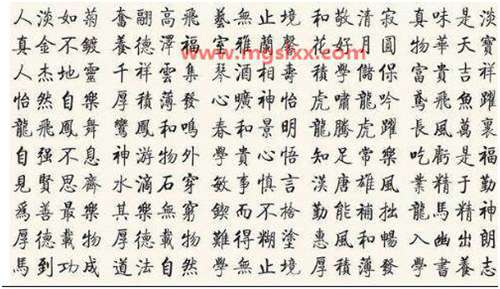 人淡如菊 奮翮高飛 藝無止境 和敬清寂 真味是淡
真金不鍍 養德澤福 室雅蘭馨 花好月圓 物華天寶
人杰地靈 千祥雲集 琴酒相壽 積學儲保 富貴吉祥
怡然自樂 厚積薄發 心曠神怡 虎嘯龍吟 鳶飛魚躍
龍飛鳳舞 鸞鳳和鳴 春和景明 龍騰虎躍 長風萬裏
自强不息 神游物外 學貴心悟 知足常樂 吃虧是福
見賢思齊 水滴石穿 敏事慎言 漢唐雄風 業精于勤
爲善最樂 其樂無窮 鍥而不拾 勤能補拙 龍馬精神
厚德載物 厚德載物 難得糊塗 惠風和暢 入幽出朗
馬到功成 道法自然 學無止境 厚積薄發 學書養志